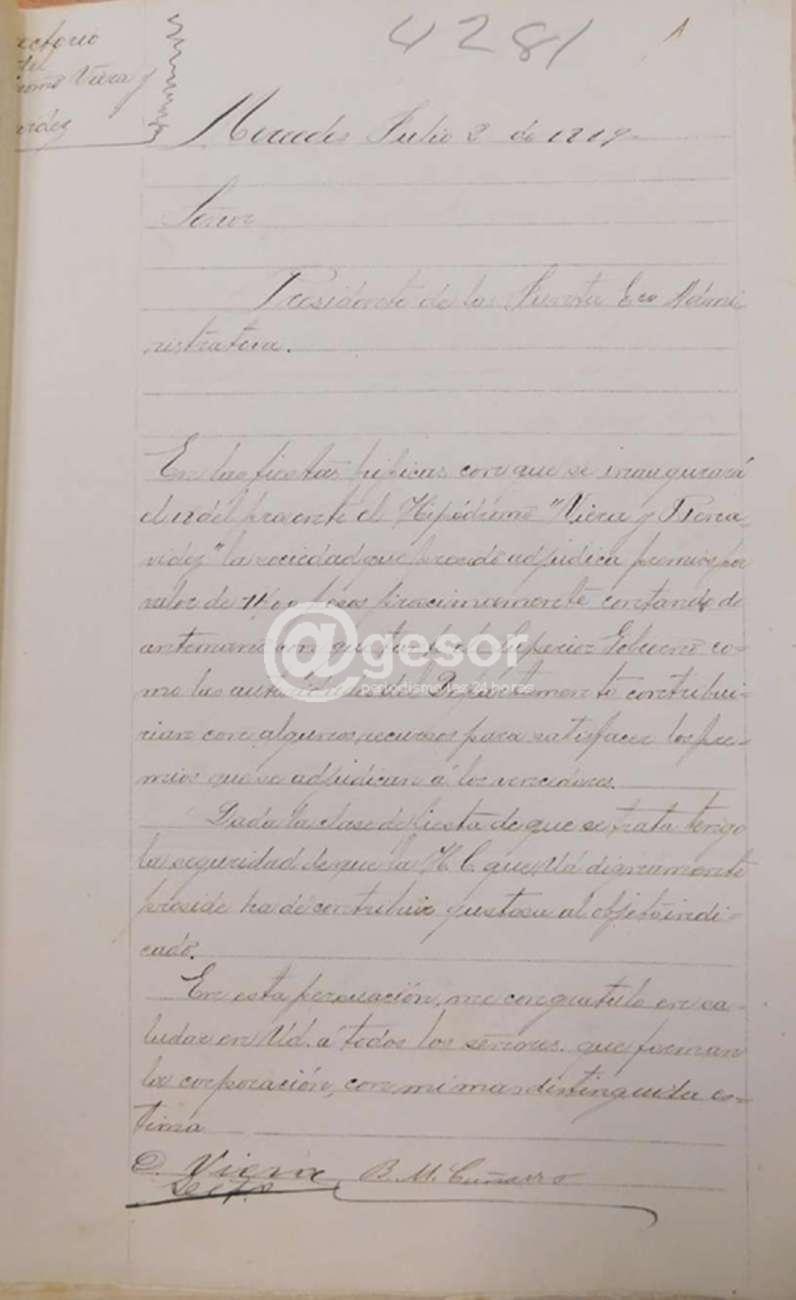 4281
1
ectorio
del
romo Viera y
videz
Mercedes Julio 2 de 1919
Señor
Presidente de la Junta Eco Admi
nistrativa.
En las fiestas hípicas con que se inaugurará
el 18 del presente el Hipódromo "Viera y Bena-
videz" la sociedad que presido adjudica premios por
valor de pesos proximamente contando de
antemano con que tanto el Superior Gobierno co-
mo las autoridades del Departamento contribui-
rian con algunos recursos para satisfacer los pre-
mios que se adjudican á los vencedores.
Dada la clase de fiesta de que se trata tengo
la seguridad de que la H. C. que Ud dignamente
preside ha de contribuir gustosa al objeto indi-
cado.
En esta persuación, me congratulo en sa-
ludar en Ud. a todos los señores que forman
la corporación, con mi mas distinguida es-
tima
D. Viera B. M. Cuñarro
Secrio
@gesor
periodismo las 24 horas